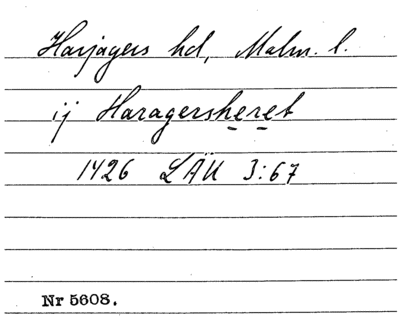 Harjagers hd, Malm. l.
ij Haragersheret
1426 LÄU 3:67
Nr 5608.